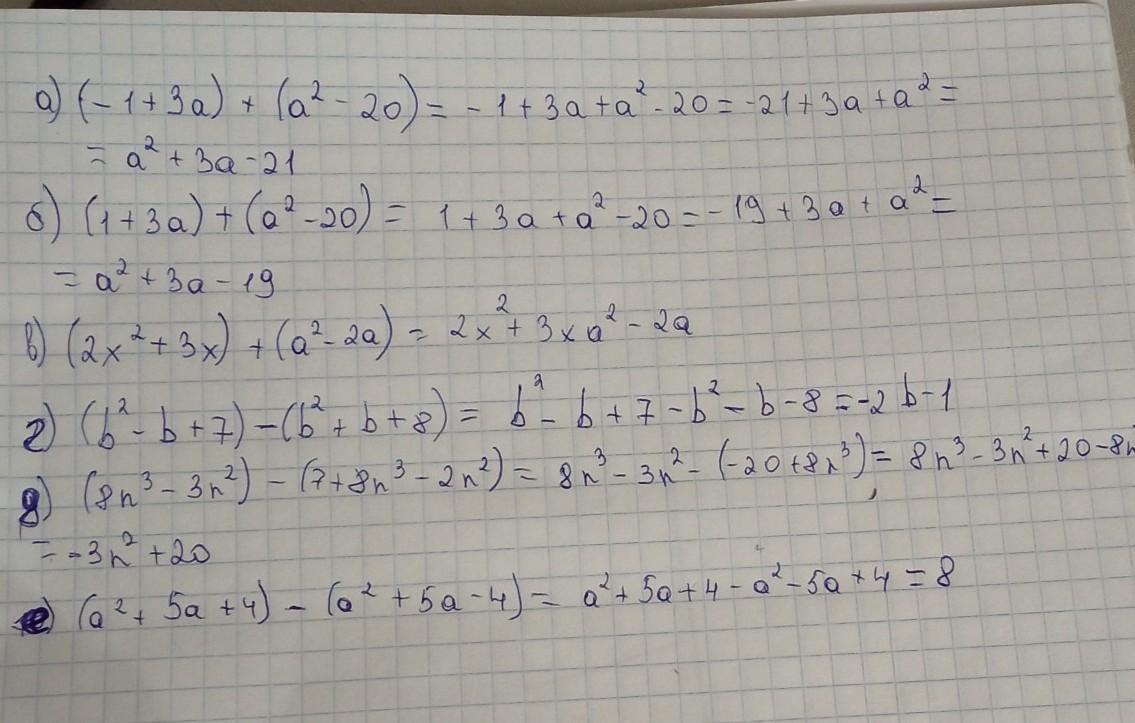 а) (-1+3a) + (a² - 20) = -1+3a+a²-20 = -21+3a+a² =
= a² + 3a - 21
б) (1+3a) + (a² -20) = 1+3a+a² -20 = -19+3a+a² =
= a² + 3a - 19
в) (2x² + 3x) + (a² - 2a) = 2x² + 3xa² - 2a
г) (b² - b + 7) - (b² + b + 8) = b² - b + 7 - b² - b - 8 = -2b-1
д) (8n³ - 3n²) - (7+8n³ - 2n²) = 8n³ - 3n² - (-20+8n³) = 8n³ - 3n² + 20 - 8n
= -3n² + 20
е) (a² + 5a + 4) - (a² + 5a - 4) = a² + 5a + 4 - a² - 5a + 4 = 8